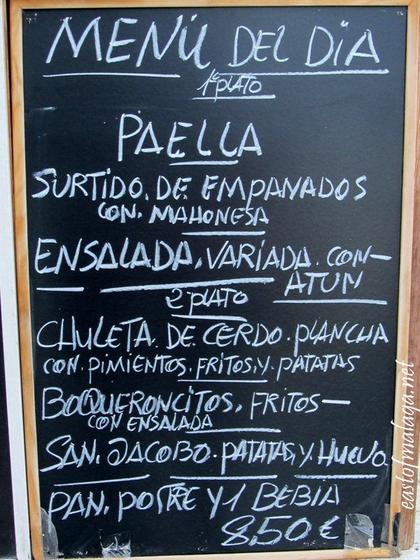 MENÚ DEL DÍA
1º PLATO
PAELLA
SURTIDO. DE EMPANADOS
CON. MAHONESA
ENSALADA, VARIADA. CON-
ATUN
2º PLATO
CHULETA. DE CERDO. PLANCHA
CON. PIMIENTOS. FRITOS. Y. PATATAS
BOQUERONCITOS, FRITOS-
CON ENSALADA
SAN. JACOBO. PATATAS, Y HUEVO
PAN. POSTRE Y 1 BEBIA
8,50 €
eastofmalaga.net